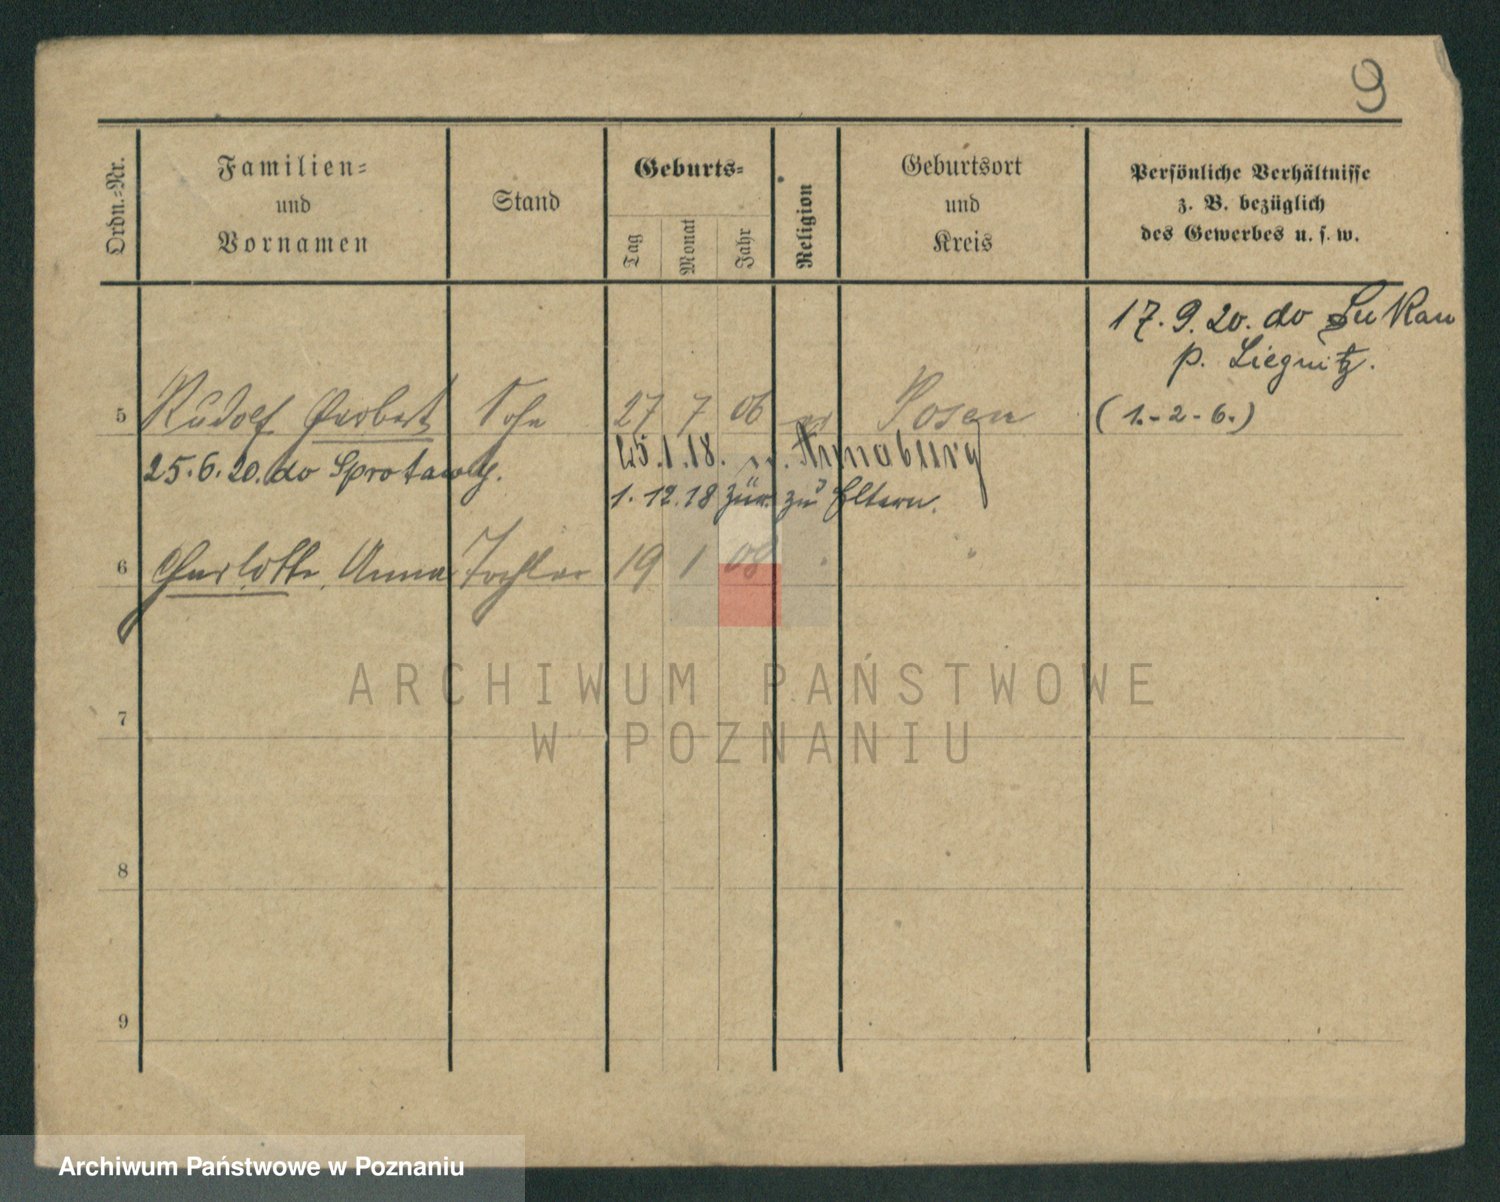 9
Ordn.-Nr.
Familien-
und
Vornamen
Stand
Geburts-
Tag
Monat
Jahr
Religion
Geburtsort
und
Kreis
Persönliche Verhältnisse
z. B. bezüglich
des Gewerbes u. s. w.
17. 9. 20. do
p. Liegnitz.
5 Rudolf Herbert Sohn 27 7 06 Posen (1.-2-6.)
25. 6. 20. do 25. 1. 18. n. Annaburg
1. 12. 18 zür. zu Eltern.
6 Charlotte Anna Tochter 19 1 08 " "
7
8
9
ARCHIWUM PAŃSTWOWE
W POZNANIU
Archiwum Państwowe w Poznaniu